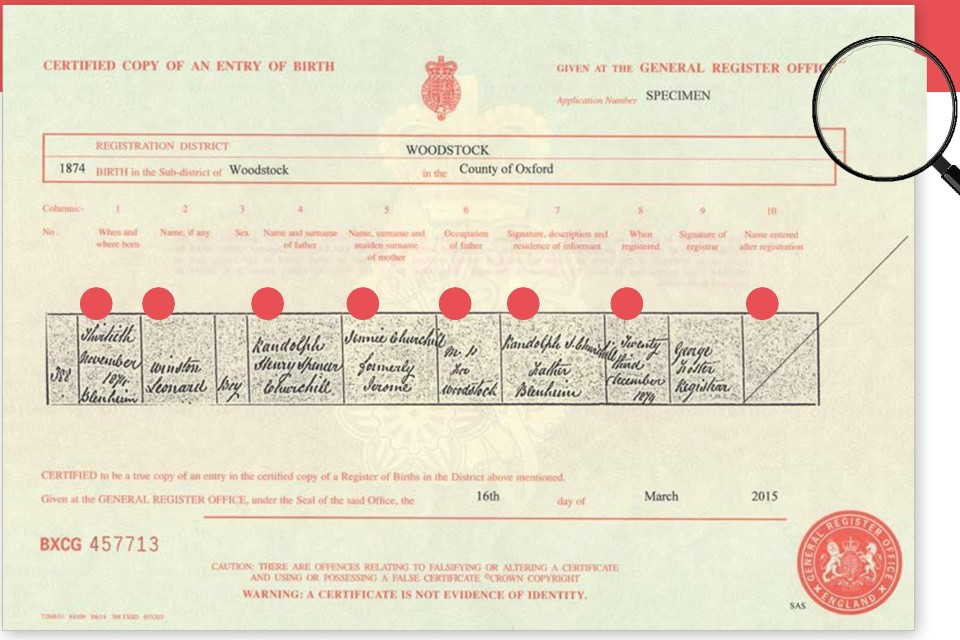 CERTIFIED COPY OF AN ENTRY OF BIRTH
GIVEN AT THE GENERAL REGISTER OFFIC
Application Number SPECIMEN
REGISTRATION DISTRICT WOODSTOCK
1874 BIRTH in the Sub-district of Woodstock in the County of Oxford
Columns:- 1 2 3 4 5 6 7 8 9 10
No. When and where born
Name, if any
Sex
Name and surname of father
Name, surname and maiden surname of mother
Occupation of father
Signature, description and residence of informant
When registered
Signature of registrar
Name entered after registration
Thirtieth
November
1874
Blenheim
Winston
Leonard
Boy
Randolph
Henry Spencer
Churchill
Jennie Churchill
formerly
Jerome
M.P.
for
Woodstock
Randolph S. Churchill
Father
Blenheim
Twenty
third
December
1874
George
Registrar
CERTIFIED to be a true copy of an entry in the certified copy of a Register of Births in the District above mentioned.
Given at the GENERAL REGISTER OFFICE, under the Seal of the said Office, the 16th day of March 2015
BXCG 457713
CAUTION: THERE ARE OFFENCES RELATING TO FALSIFYING OR ALTERING A CERTIFICATE
AND USING OR POSSESSING A FALSE CERTIFICATE ©CROWN COPYRIGHT
WARNING: A CERTIFICATE IS NOT EVIDENCE OF IDENTITY.
GENERAL REGISTER OFFICE
ENGLAND
SAS